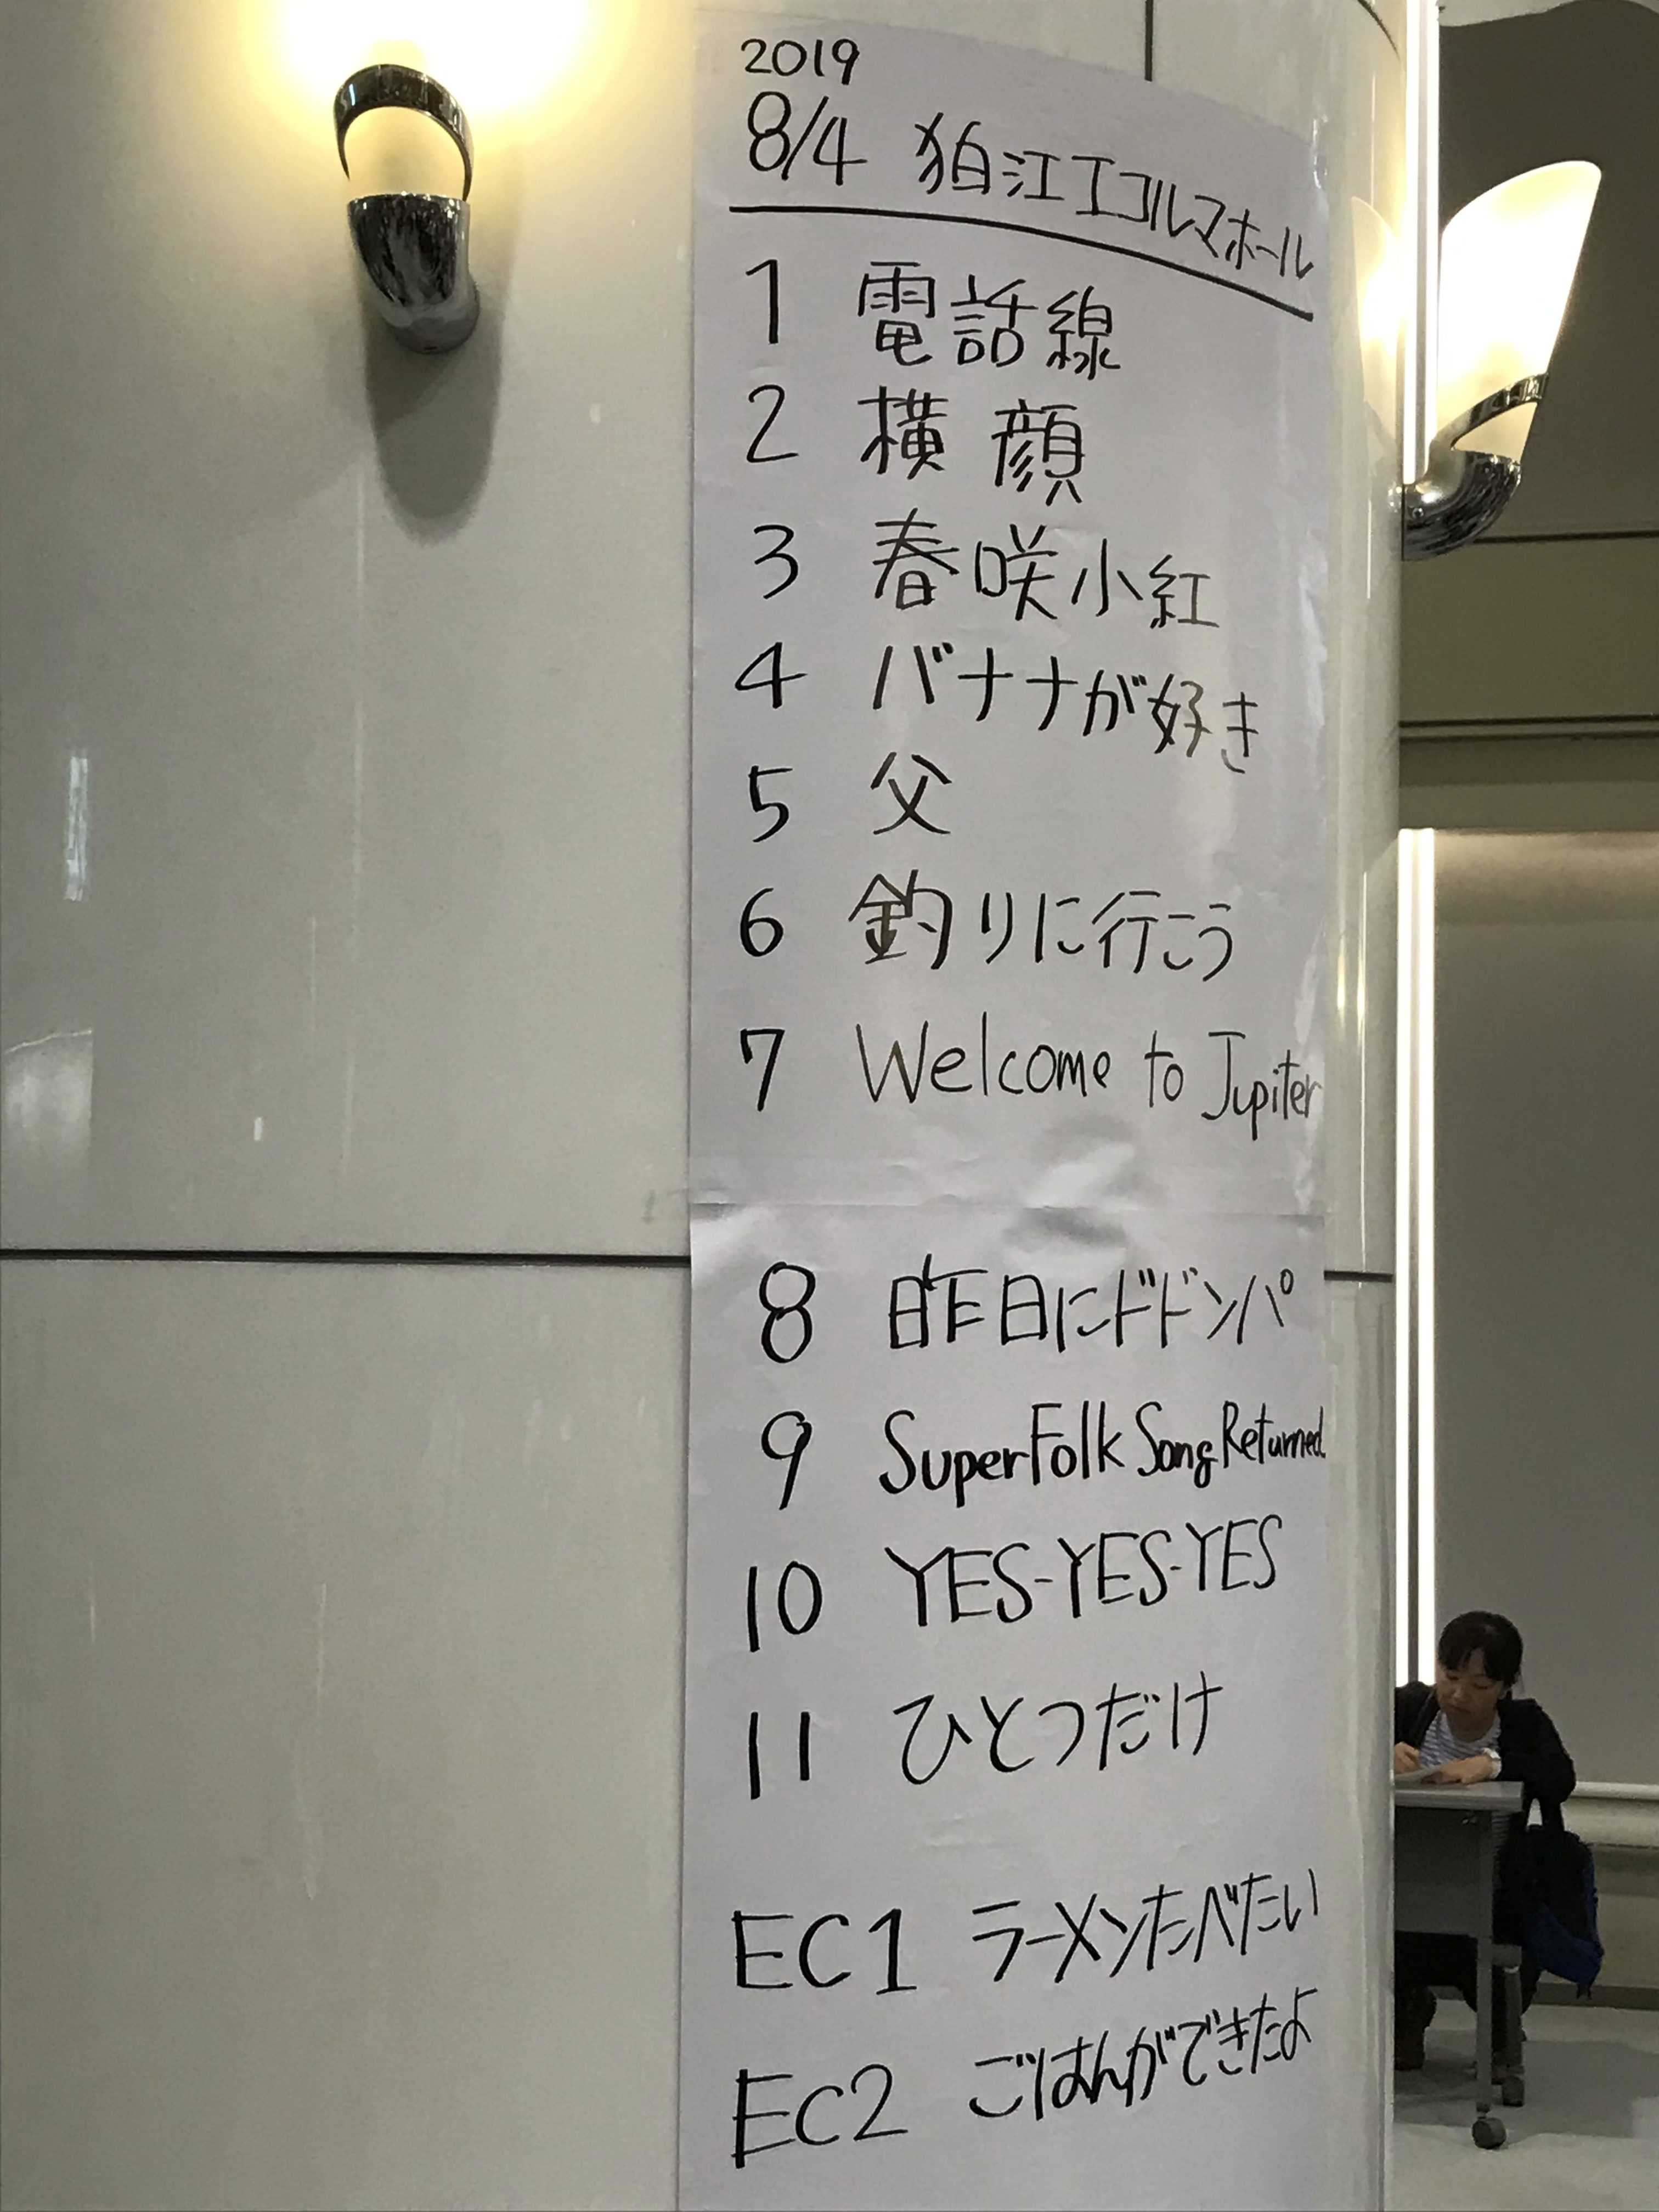 2019
8/4 狛江エコルマホール
1 電話線
2 横顔
3 春咲小紅
4 バナナが好き
5 父
6 釣りに行こう
7 Welcome to Jupiter
8 昨日にドドンパ
9 SuperFolk Song Returned
10 YES-YES-YES
11 ひとつだけ
EC1 ラーメンたべたい
EC2 ごはんができたよ